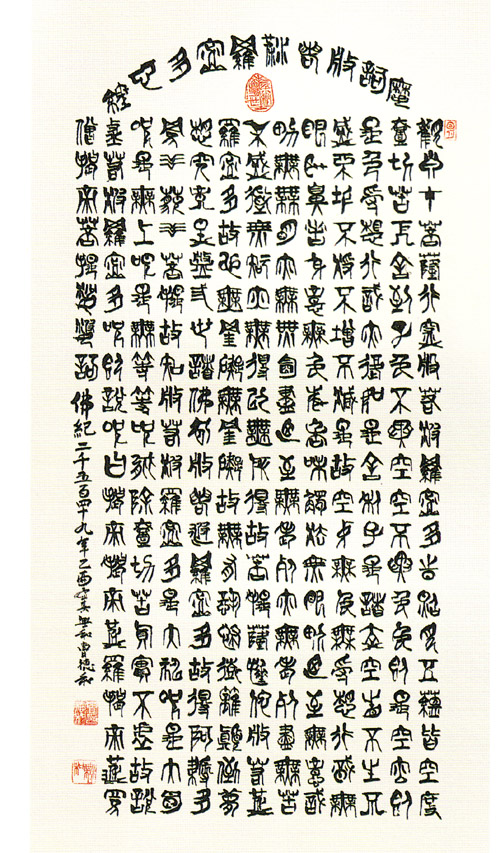 摩訶般若波羅蜜多心經
觀自在菩薩行深般若波羅蜜多時照見五蘊皆空度
壹切苦厄舍利子色不異空空不異色色即是空空即
是色受想行識亦復如是舍利子是諸法空相不生不
滅不垢不淨不增不減是故空中無色無受想行識無
眼耳鼻舌身意無色聲香味觸法無眼界乃至無意識
界無無明亦無無明盡乃至無老死亦無老死盡無苦
集滅道無智亦無得以無所得故菩提薩埵依般若波
羅蜜多故心無罣礙無罣礙故無有恐怖遠離顛倒夢
想究竟涅槃三世諸佛依般若波羅蜜多故得阿耨多
羅三藐三菩提故知般若波羅蜜多是大神咒是大明
咒是無上咒是無等等咒能除壹切苦真實不虛故說
般若波羅蜜多咒即說咒曰揭諦揭諦波羅揭諦波羅
僧揭諦菩提薩婆訶 佛紀二千五百卌九年乙酉